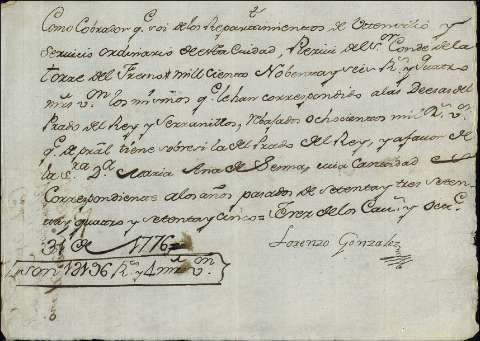 Como Cobrador q.e soi de los Repartimientos de Utensilio y
Servicio ordinario de esta Ciudad, Reciví del S.or Conde de la
torre del Fresno mill Ciento Nobenta y seis R.s y Quatro
mrs v.on los mismos q.e le han correspondido a las Deesas del
Prado del Rey y Serranillos, Rebajados ochocientos mil R.s v.on
q.e de pral tiene sobre si la del Prado del Rey, y a favor de
la S.ra D.a Maria Ana de Sema, cuia Cantidad
Correspondienos a los años pasados de setenta y tres seten-
ta y quatro y setenta y cinco= Xerez de los Cav.s y
31 de 1776=
Son 1196 R.s y 4 mrs v.on
Lorenzo Gonzalez